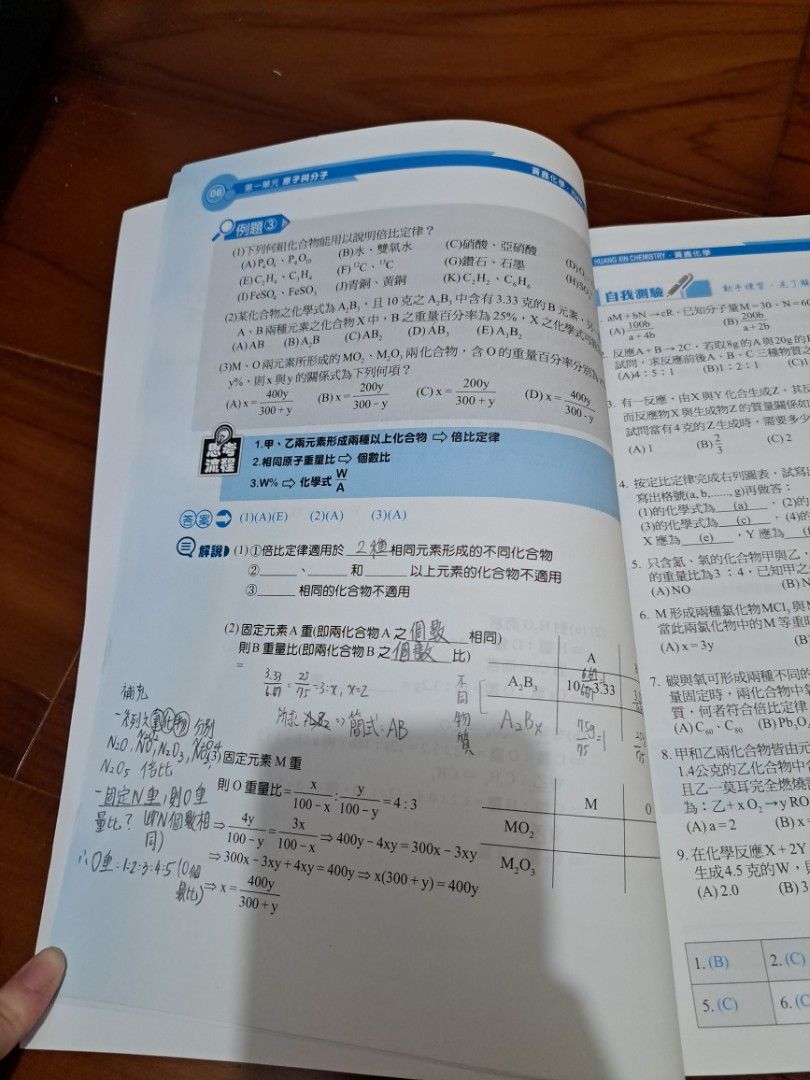 06 第一單元 原子與分子
黃鑫化學
例題③
(1)下列何組化合物能用以說明倍比定律？
(A)P₄O₆、P₄O₁₀ (B)水、雙氧水 (C)硝酸、亞硝酸
(E)C₂H₄、C₃H₄ (F)¹²C、¹³C (G)鑽石、石墨
(I)FeSO₄、FeSO₃ (J)青銅、黃銅 (K)C₂H₂、C₆H₆
(2)某化合物之化學式為A₂B₃，且10克之A₂B₃中含有3.33克的B元素，
A、B兩種元素之化合物X中，B之重量百分率為25%，X之化學式
(A)AB (B)A₂B (C)AB₂ (D)AB₃ (E)A₃B₂
(3)M、O兩元素所形成的MO₂、M₂O₃兩化合物，含O的重量百分率分別
y%，則x與y的關係式為下列何項？
(A) x = 400y/300+y (B) x = 200y/300-y (C) x = 200y/300+y (D) x = 400y/300-y
思考流程
1.甲、乙兩元素形成兩種以上化合物 ⇨ 倍比定律
2.相同原子重量比 ⇨ 個數比
3.W% ⇨ 化學式 W/A
答案 (1)(A)(E) (2)(A) (3)(A)
解說 (1)①倍比定律適用於 2種 相同元素形成的不同化合物
②____、____和____以上元素的化合物不適用
③____相同的化合物不適用
(2)固定元素A重(即兩化合物A之 個數 相同)
則B重量比(即兩化合物B之 個數 比)
=
3.33/6.67 : 25/75 = 3:x, x=2
⇒ 簡式:AB
不同物質
A
A₂B₃ 3.33
A₂Bₓ
補充
分別
N₂O, NO, N₂O₃,
N₂O₅ 倍比
-固定N重,則O重
量比?
同)
∴O重=1:2:3:4:5 (O個
數比)
固定元素M重
則O重量比= x/100-x : y/100-y = 4:3
⇒ 4y/100-y = 3x/100-x ⇒ 400y-4xy=300x-3xy
⇒ 300x-3xy+4xy=400y ⇒ x(300+y)=400y
⇒ x = 400y/300+y
M O
MO₂
M₂O₃
HUANG XIN CHEMISTRY．黃鑫化學
自我測驗
aM+bN→cR，已知分子量M=30、
(A) 100b/a+4b (B) 200b/a+2b
2. 反應A+B→2C，若取8g的A與20g的
試問，求反應前後A、B、C三種物質之
(A)4：5：1 (B)1：2：1
3. 有一反應，由X與Y化合生成Z，
而反應物X與生成物Z的質量關係如
試問當有4克的Z生成時，需要多少
(A) 1 (B) 2/3 (C) 2
4. 按定比定律完成右列圖表，試寫
寫出格號(a, b,......, g)再做答：
(1)的化學式為 (a) ，(2)的
(3)的化學式為 (c) ，(4)的
X應為 (e) ，Y應為
5. 只含氮、氧的化合物甲與乙，
的重量比為3：4，已知甲之
(A) NO
6. M形成兩種氯化物MCl₃與
當此兩氯化物中的M等重
(A) x=3y
7. 碳與氧可形成兩種不同的
量固定時，兩化合物中
質，何者符合倍比定律
(A) C₆₀、C₈₀ (B) Pb₃O
8. 甲和乙兩化合物皆由元
1.4公克的乙化合物中
且乙一莫耳完全燃燒
為：乙+xO₂→yRO
(A) a=2 (B) x=
9. 在化學反應X+2Y
生成4.5克的W，
(A) 2.0 (B) 3
1. (B) 2. (C)
5. (C) 6. (C